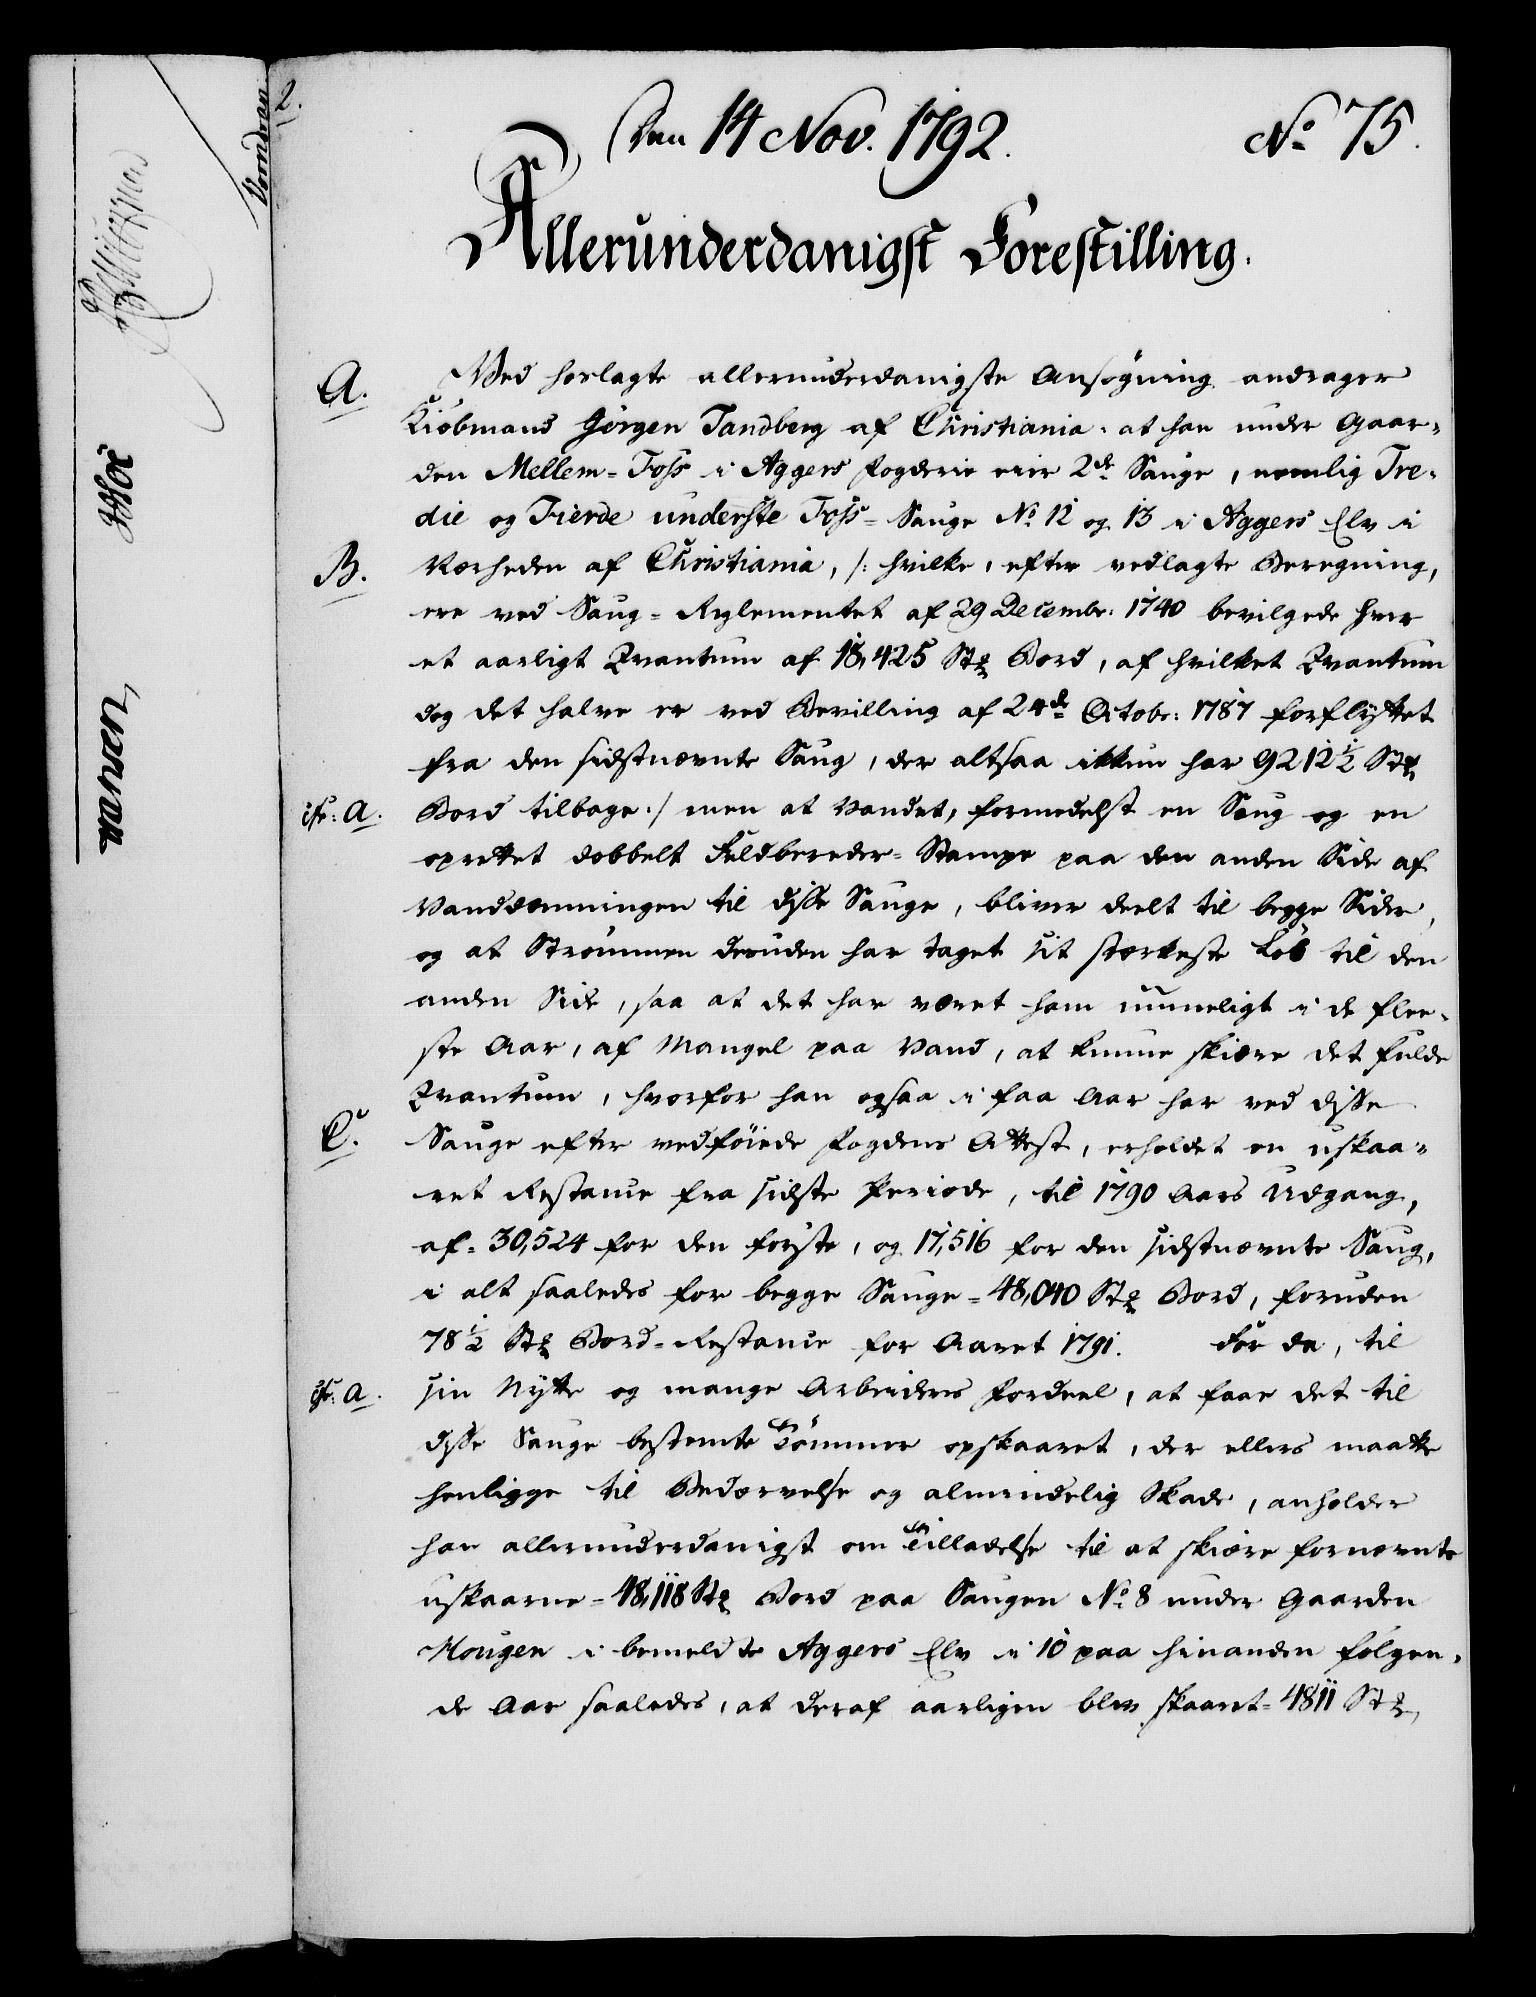 2.
Den 14 Nov. 1792.
No 75.
Allerunderdanigst Forestilling.
A.
Med hoslagte allerunderdanigste Ansøgning andrager
Kiøbmand Jørgen Tandberg af Christiania: at han under Gaar-
den Mellem-Foss i Aggers Fogderie eier 2de Sauge, nemlig Tre-
die og Fierde underste Foss-Sauge No 12 og 13 i Aggers Elv i
B.
Nærheden af Christiania, /: hvilke, efter vedlagte Beregning,
ere ved Saug-Reglementet af 29 Decembr: 1740 bevilgede hver
et aarligt Qvantum af 18,425 Stkr Bord, af hvilket Qvantum
dog det halve er ved Bevilling af 24de Octobr: 1787 forflyttet
fra den sidstnævnte Saug, der altsaa ikkun har 9212½ Stkr
cfr: A.
Bord tilbage :/ men at Vandet, formedelst en Saug og en
oprettet dobbelt Feldbereder-Stampe paa den anden Side af
Vanddæmningen til disse Sauge, bliver deelt til begge Sider,
og at Strømmen desuden har taget sit stærkeste Løb til den
anden Side, saa at det har været ham umueligt i de flee-
ste Aar, af Mangel paa Vand, at kunne skiære det fulde
Qvantum, hvorfor han ogsaa i faa Aar har ved disse
C.
Sauge efter vedføiede Fogdens Attest, erholdet en uskaa-
ret Restance fra sidste Periode, til 1790 Aars Udgang,
af 30,524 for den første, og 17,516 for den sidstnævnte Saug,
i alt saaledes for begge Sauge = 48,040 Stkr Bord, foruden
78½ Stkr Bord-Restance for Aaret 1791. For da, til
cfr: A.
sin Nytte og mange Arbeideres Fordeel, at faae det til
disse Sauge bestemte Tømmer opskaaret, der ellers maatte
henligge til Bedærvelse og almindelig Skade, anholder
han allerunderdanigst om Tilladelse til at skiære fornævnte
uskaarne = 48,118 Stkr Bord paa Saugen No 8 under Gaarden
Mougen i bemeldte Aggers Elv i 10 paa hinanden følgen-
de Aar saaledes, at deraf aarligen blev skaaret = 4811 Stkr,